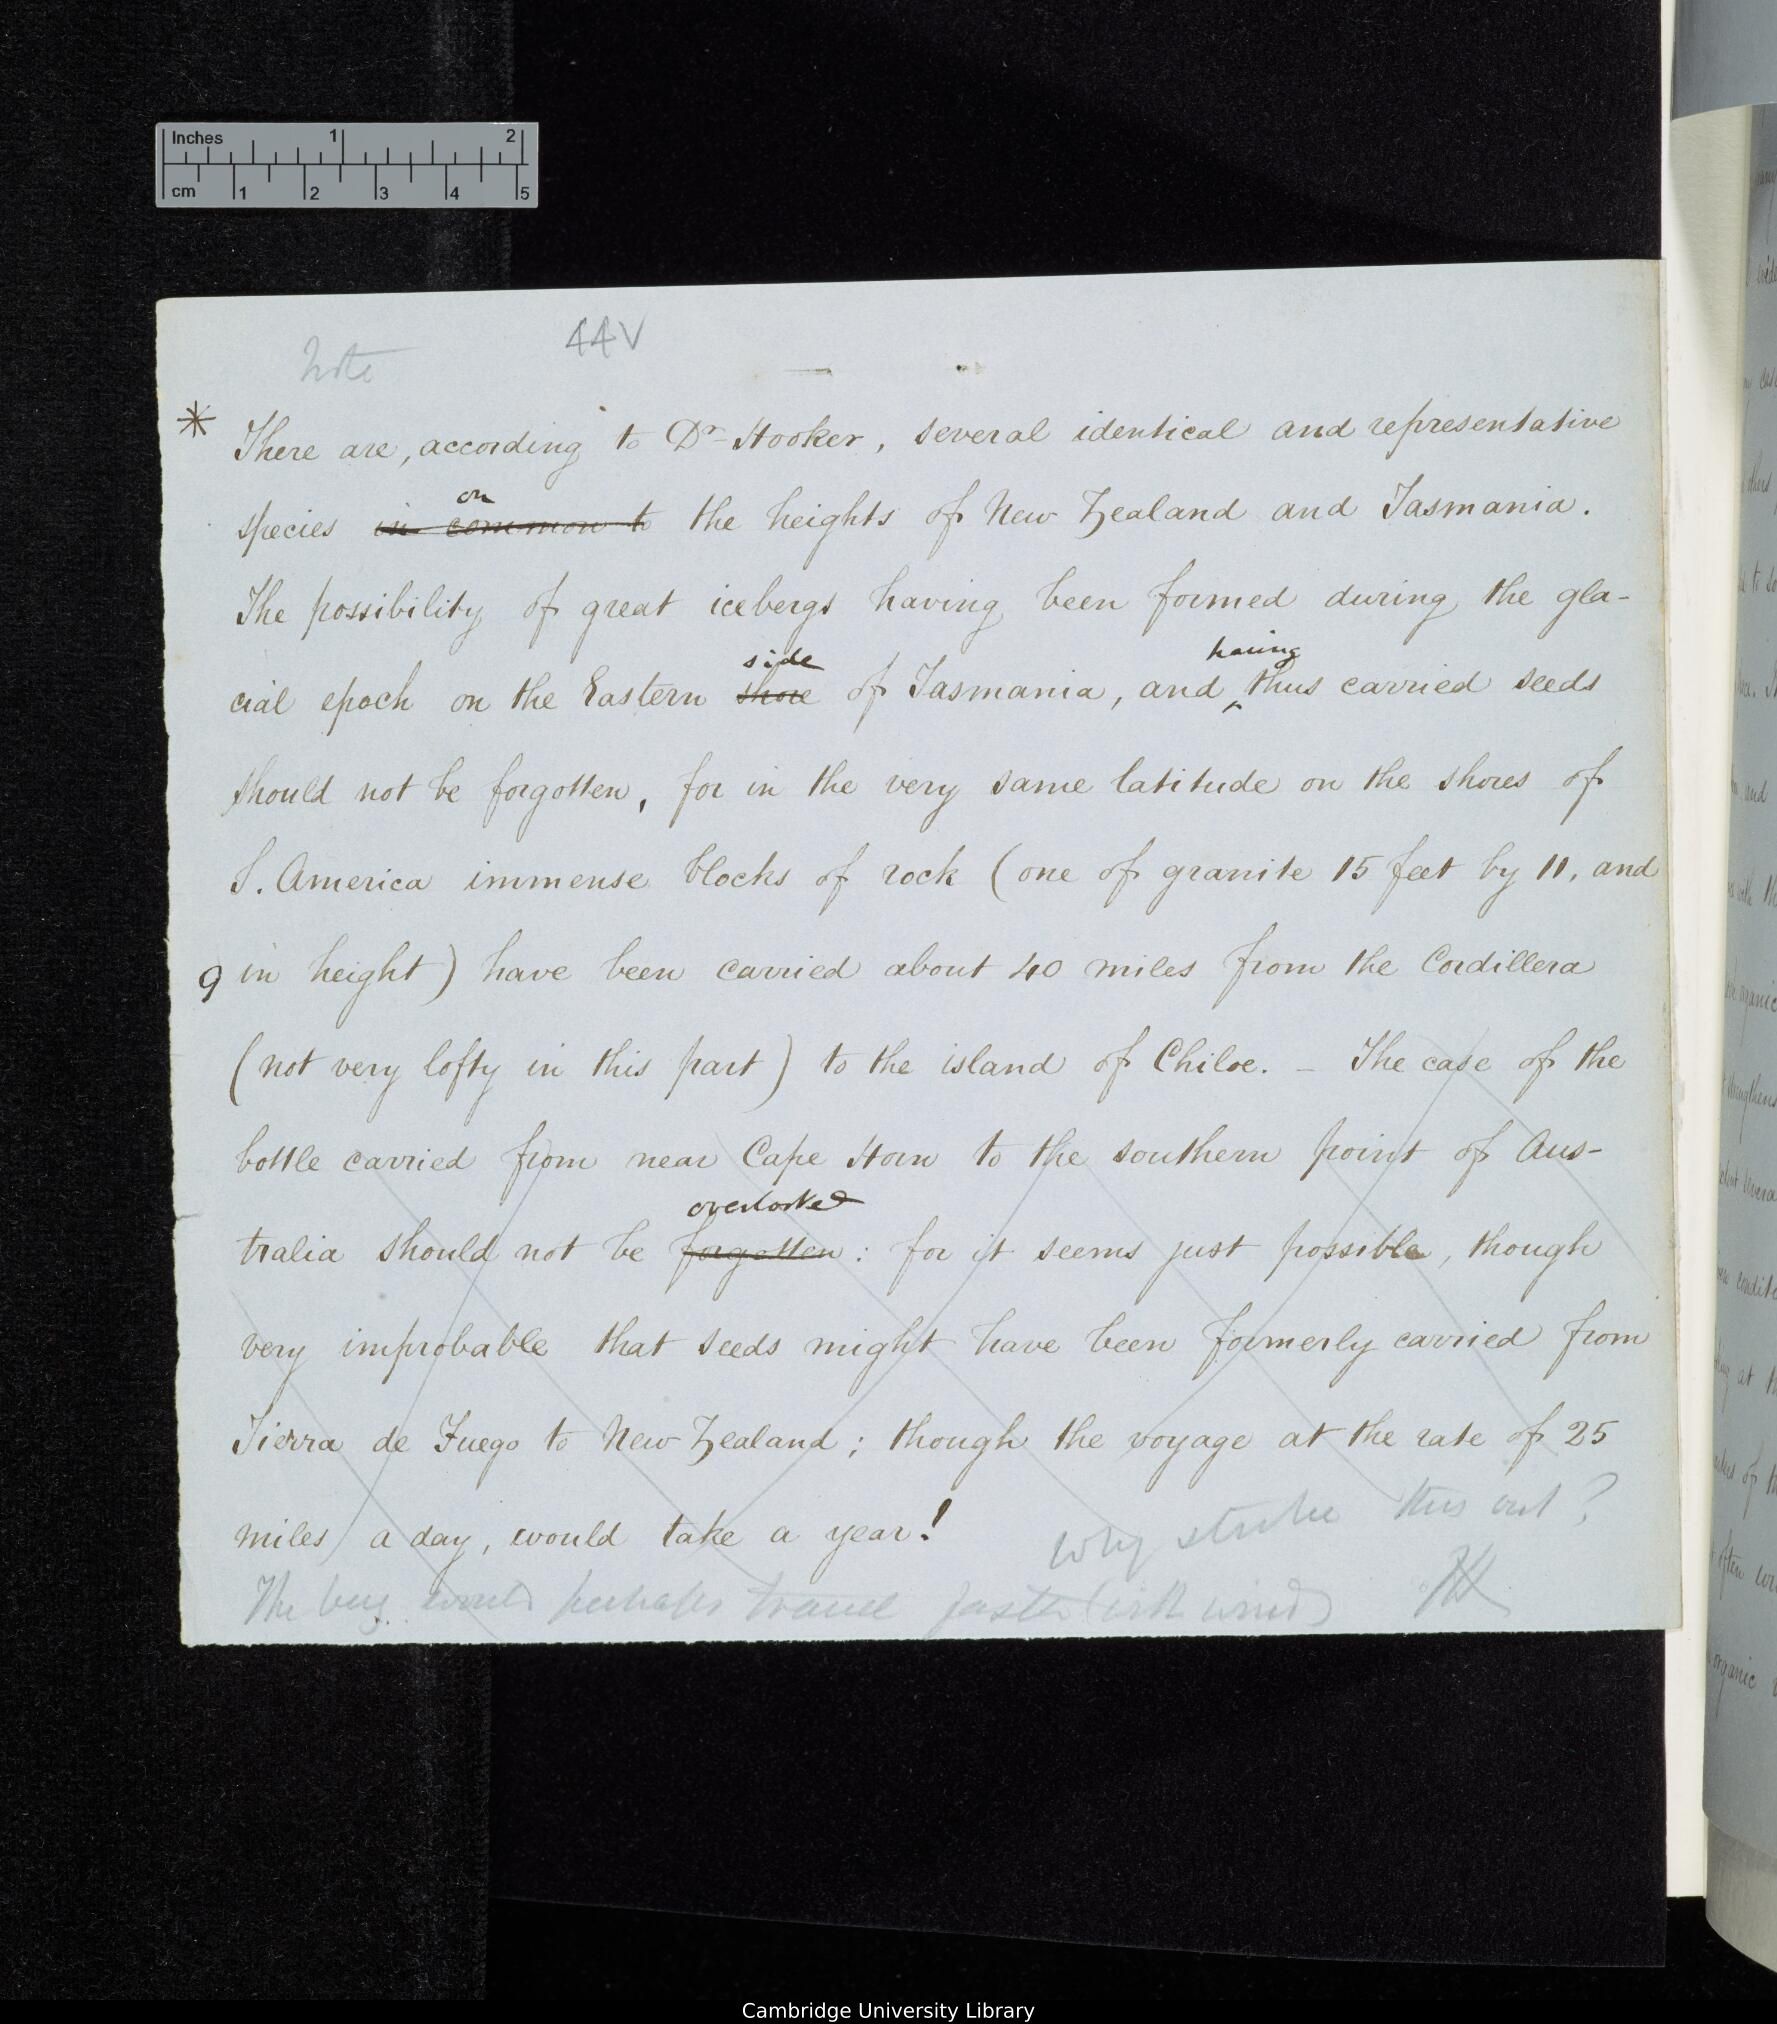 Inches 1 2
cm 1 2 3 4 5
44V
Note
* There are, according to Dr Hooker, several identical and representative
on
species in common to the heights of New Zealand and Tasmania.
The possibility of great icebergs having been formed during the gla-
side having
cial epoch on the Eastern shore of Tasmania, and thus carried seeds
should not be forgotten, for in the very same latitude on the shores of
S. America immense blocks of rock (one of granite 15 feet by 11, and
9 in height) have been carried about 40 miles from the Cordillera
(not very lofty in this part) to the island of Chiloe. – The case of the
bottle carried from near Cape Horn to the southern point of Aus-
overlooked
tralia should not be forgotten: for it seems just possible, though
very improbable that seeds might have been formerly carried from
Tierra de Fuego to New Zealand; though the voyage at the rate of 25
miles a day, would take a year!
why strike this out?
The berg would perhaps travel faster (with wind)
Cambridge University Library